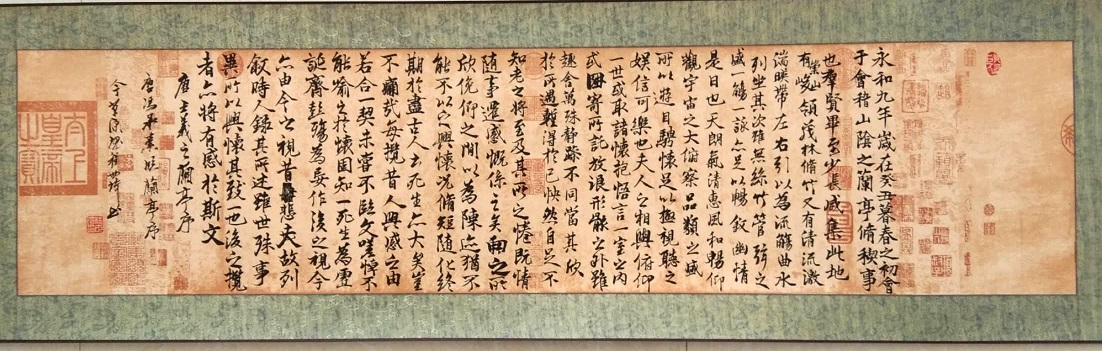 永和九年歲在癸丑暮春之初會
于會稽山陰之蘭亭脩稧事
也羣賢畢至少長咸集此地
有崇山峻領茂林脩竹又有清流激
湍暎帶左右引以為流觴曲水
列坐其次雖無絲竹管弦之
盛一觴一詠亦足以暢敘幽情
是日也天朗氣清惠風和暢仰
觀宇宙之大俯察品類之盛
所以遊目騁懷足以極視聽之
娛信可樂也夫人之相與俯仰
一世或取諸懷抱悟言一室之內
或因寄所託放浪形骸之外雖
趣舍萬殊靜躁不同當其欣
於所遇輕得於己怏然自足不
知老之將至及其所之惓既情
隨事遷感慨係之矣向之所
欣俛仰之間以為陳迹猶不
能不以之興懷況脩短隨化終
期於盡古人云死生亦大矣豈
不痛哉每攬昔人興感之由
若合一契未嘗不臨文嗟悼不
能喻之於懷固知一死生為虛
誕齊彭殤為妄作後之視今
亦由今之視昔悲夫故列
敘時人錄其所述雖世殊事
異所以興懷其致一也後之攬
者亦將有感於斯文
王羲之蘭亭序
唐馮承素版蘭亭序